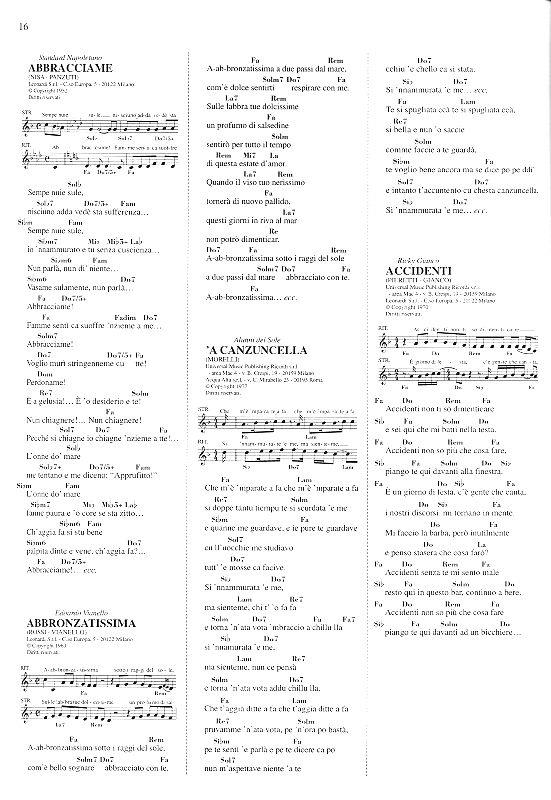 16
Standard Napoletano
ABBRACCIAME
(NISA - PANZUTI)
Leonardi S.r.l. - C.so Europa, 5 - 20122 Milano
© Copyright 1952
Diritti riservati
STR.
Sempe nuie sule,
RIT.
Solb
Sempe nuie sule,
Sol7 Do7/5+ Fam
nisciuno adda vedè sta sufferenza…
Sibm Fam
Sempe nuie sule,
Sibm7 Mib Mib5+ Lab
io 'nnammurato e tu senza cuscienza…
Sibm6 Fam
Nun parlà, nun dì 'niente…
Sibm6 Do7
Vasame sulamente, nun parlà…
Fa Do7/5+
Abbracciame!
Fa Fadim Do7
Famme senti ca suoffre 'nzieme a me…
Solm7
Abbracciame!
Do7 Do7/5+ Fa
Voglio murì stringenneme cu tte!
Dom
Perdoname!
Re7 Solm
È a gelusia!… È 'o desiderio e te!
Fa
Nun chiagnere!… Nun chiagnere!
Sol7 Do7 Fa
Pecché si chiagne io chiagne 'nzieme a tte!…
Solb
L'onne do' mare
Solb7+ Do7/5+ Fam
me tentano e me diceno: "Apprufitto!"
Sibm Fam
L'onne do' mare
Sibm7 Mib Mib5+ Lab
fanne paura e 'o core se sta zitto…
Sibm6 Fam
Ch'aggia fa si stu bene
Sibm6 Do7
palpita dinte e vene, ch'aggia fa?…
Fa Do7/5+
Abbracciame!… ecc.
Edoardo Vianello
ABBRONZATISSIMA
(ROSSI - VIANELLO)
Leonardi S.r.l. - C.so Europa, 5 - 20122 Milano
© Copyright 1963
Diritti riservati
RIT.
A-ab-bron-za-tis-sima sotto i rag-gi del so-le,
STR.
Fa Rem
A-ab-bronzatissima sotto i raggi del sole,
Solm7 Do7 Fa
com'è bello sognare abbracciato con te.
Fa Rem
A-ab-bronzatissima a due passi dal mare,
Solm7 Do7 Fa
com'è dolce sentirti respirare con me.
La7 Rem
Sulle labbra tue dolcissime
Fa
un profumo di salsedine
Solm
sentirò per tutto il tempo
Rem Mi7 La
di questa estate d'amor.
La7 Rem
Quando il viso tuo nerissimo
Fa
tornerà di nuovo pallido,
La7
questi giorni in riva al mar
Re
non potrò dimenticar.
Do7 Fa Rem
A-ab-bronzatissima sotto i raggi del sole
Solm7 Do7 Fa
a due passi dal mare abbracciato con te.
Fa
A-ab-bronzatissima… ecc.
Alunni del Sole
'A CANZUNCELLA
(MORELLI)
Universal Music Publishing Ricordi s.r.l.
- area Mac 4 - v. B. Crespi, 19 - 20159 Milano
© Copyright 1977
Diritti riservati
STR.
RIT.
Fa Lam
Che m'è 'mparate a fa che m'è 'mparate a fa
Re7 Solm
si doppe tantu tiempu te si scurdata 'e me
Sibm Fa
e quanne me guardave, e je pure te guardave
Sol7
cu ll'uocchie me studiavo
Do7
tutt' 'e mosse ca facive.
Sib Do7
Si 'nnammurata 'e me,
Lam Re7
ma sienteme, chi t' 'o fa fa
Solm Do7 Fa Fa7
e torna 'n'ata vota 'mbraccio a chillu lla
Sib Do7
si 'nnamurata 'e me,
Lam Re7
ma sienteme, nun ce pensà
Solm Do7
e torna 'n'ata vota addu chillu lla.
Fa Lam
Che t'aggia ditte a fa che t'aggia ditte a fa
Re7 Solm
pruvamme 'n'ata vota, pe 'n'ora po bastà,
Sibm Fa
pe te sentì 'e parlà e pe te dicere ca po
Sol7
nun m'aspettave niente 'a te
Do7
cchiu 'e chello ca si stata.
Sib Do7
Si 'nnammurata 'e me… ecc.
Fa Lam
Te si spugliata ccà te si spugliata ccà,
Re7
si bella e nun 'o saccie
Solm
comme faccie a te guardà,
Sibm Fa
te voglio bene ancora ma se dice po pe ddì
Sol7 Do7
e intanto t'accuntento cu chesta canzuncella.
Sib Do7
Si 'nnammurata 'e me… ecc.
Ricky Gianco
ACCIDENTI
(PIERETTI - GIANCO)
Universal Music Publishing Ricordi s.r.l.
- area Mac 4 - v. B. Crespi, 19 - 20159 Milano
Leonardi S.r.l. - C.so Europa, 5 - 20122 Milano
© Copyright 1970
Diritti riservati
RIT.
Fa Do Rem Fa Do
STR.
Fa Do Rem
Accidenti non ti so dimenticare
Sib Fa Solm Do
e sei qui che mi batti nella testa.
Fa Do Rem Fa
Accidenti non so più che cosa fare,
Sib Fa Solm Do Sib
piango te qui davanti alla finestra.
Fa Do Sib Fa
È un giorno di festa, c'è gente che canta,
Do Sib Fa
i nostri discorsi mi tornano in mente.
Do Fa
Ma faccio la barba, però inutilmente
Do La
e penso stasera che cosa farò?
Fa Do Rem Fa
Accidenti senza te mi sento male
Sib Fa Solm Do
resto qui in questo bar, continuo a bere.
Fa Do Rem Fa
Accidenti non so più che cosa fare
Sib Fa Solm Do
piango te qui davanti ad un bicchiere…